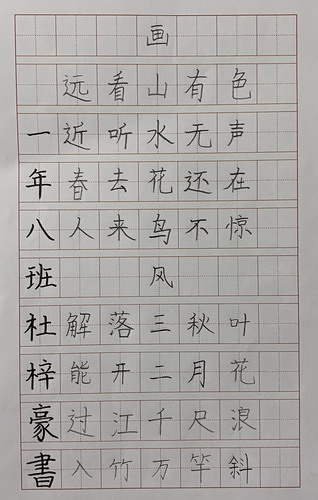 画
远看山有色
近听水无声
春去花还在
人来鸟不惊
风
解落三秋叶
能开二月花
过江千尺浪
入竹万竿斜
一年八班杜梓豪書